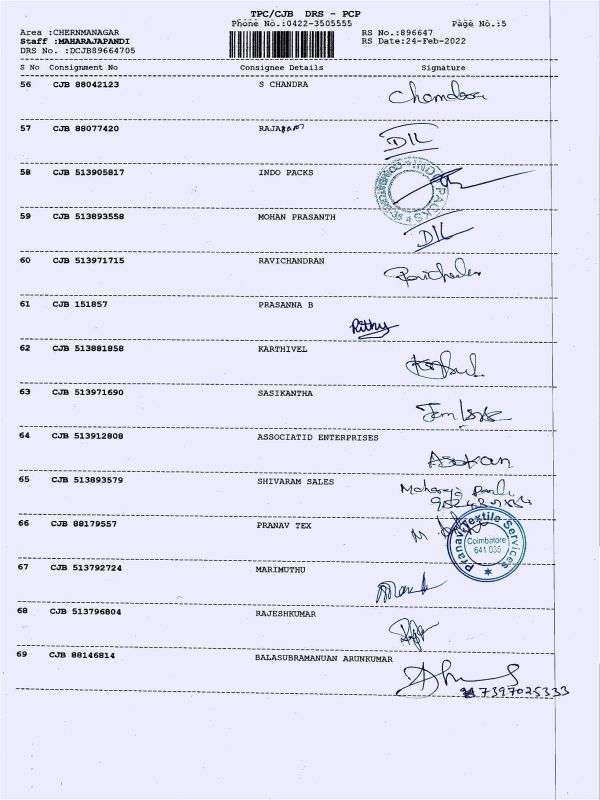 TPC/CJB DRS - PCP
Phone No.:0422-3505555 Page No.:5
Area :CHERNMANAGAR RS No.:896647
Staff :MAHARAJAPANDI RS Date:24-Feb-2022
DRS No. :DCJB89664705
S No Consignment No Consignee Details Signature
56 CJB 88042123 S CHANDRA
57 CJB 88077420 RAJA
DIL
58 CJB 513905817 INDO PACKS
INDO PACKS
59 CJB 513893558 MOHAN PRASANTH
DIL
60 CJB 513971715 RAVICHANDRAN
61 CJB 151857 PRASANNA B
Rithy
62 CJB 513881858 KARTHIVEL
63 CJB 513971690 SASIKANTHA
64 CJB 513912808 ASSOCIATID ENTERPRISES
Asokan
65 CJB 513893579 SHIVARAM SALES
66 CJB 88179557 PRANAV TEX
Pranav Textile Services
Coimbatore
641 035
67 CJB 513792724 MARIMUTHU
68 CJB 513796804 RAJESHKUMAR
69 CJB 88146814 BALASUBRAMANUAN ARUNKUMAR
7397025333